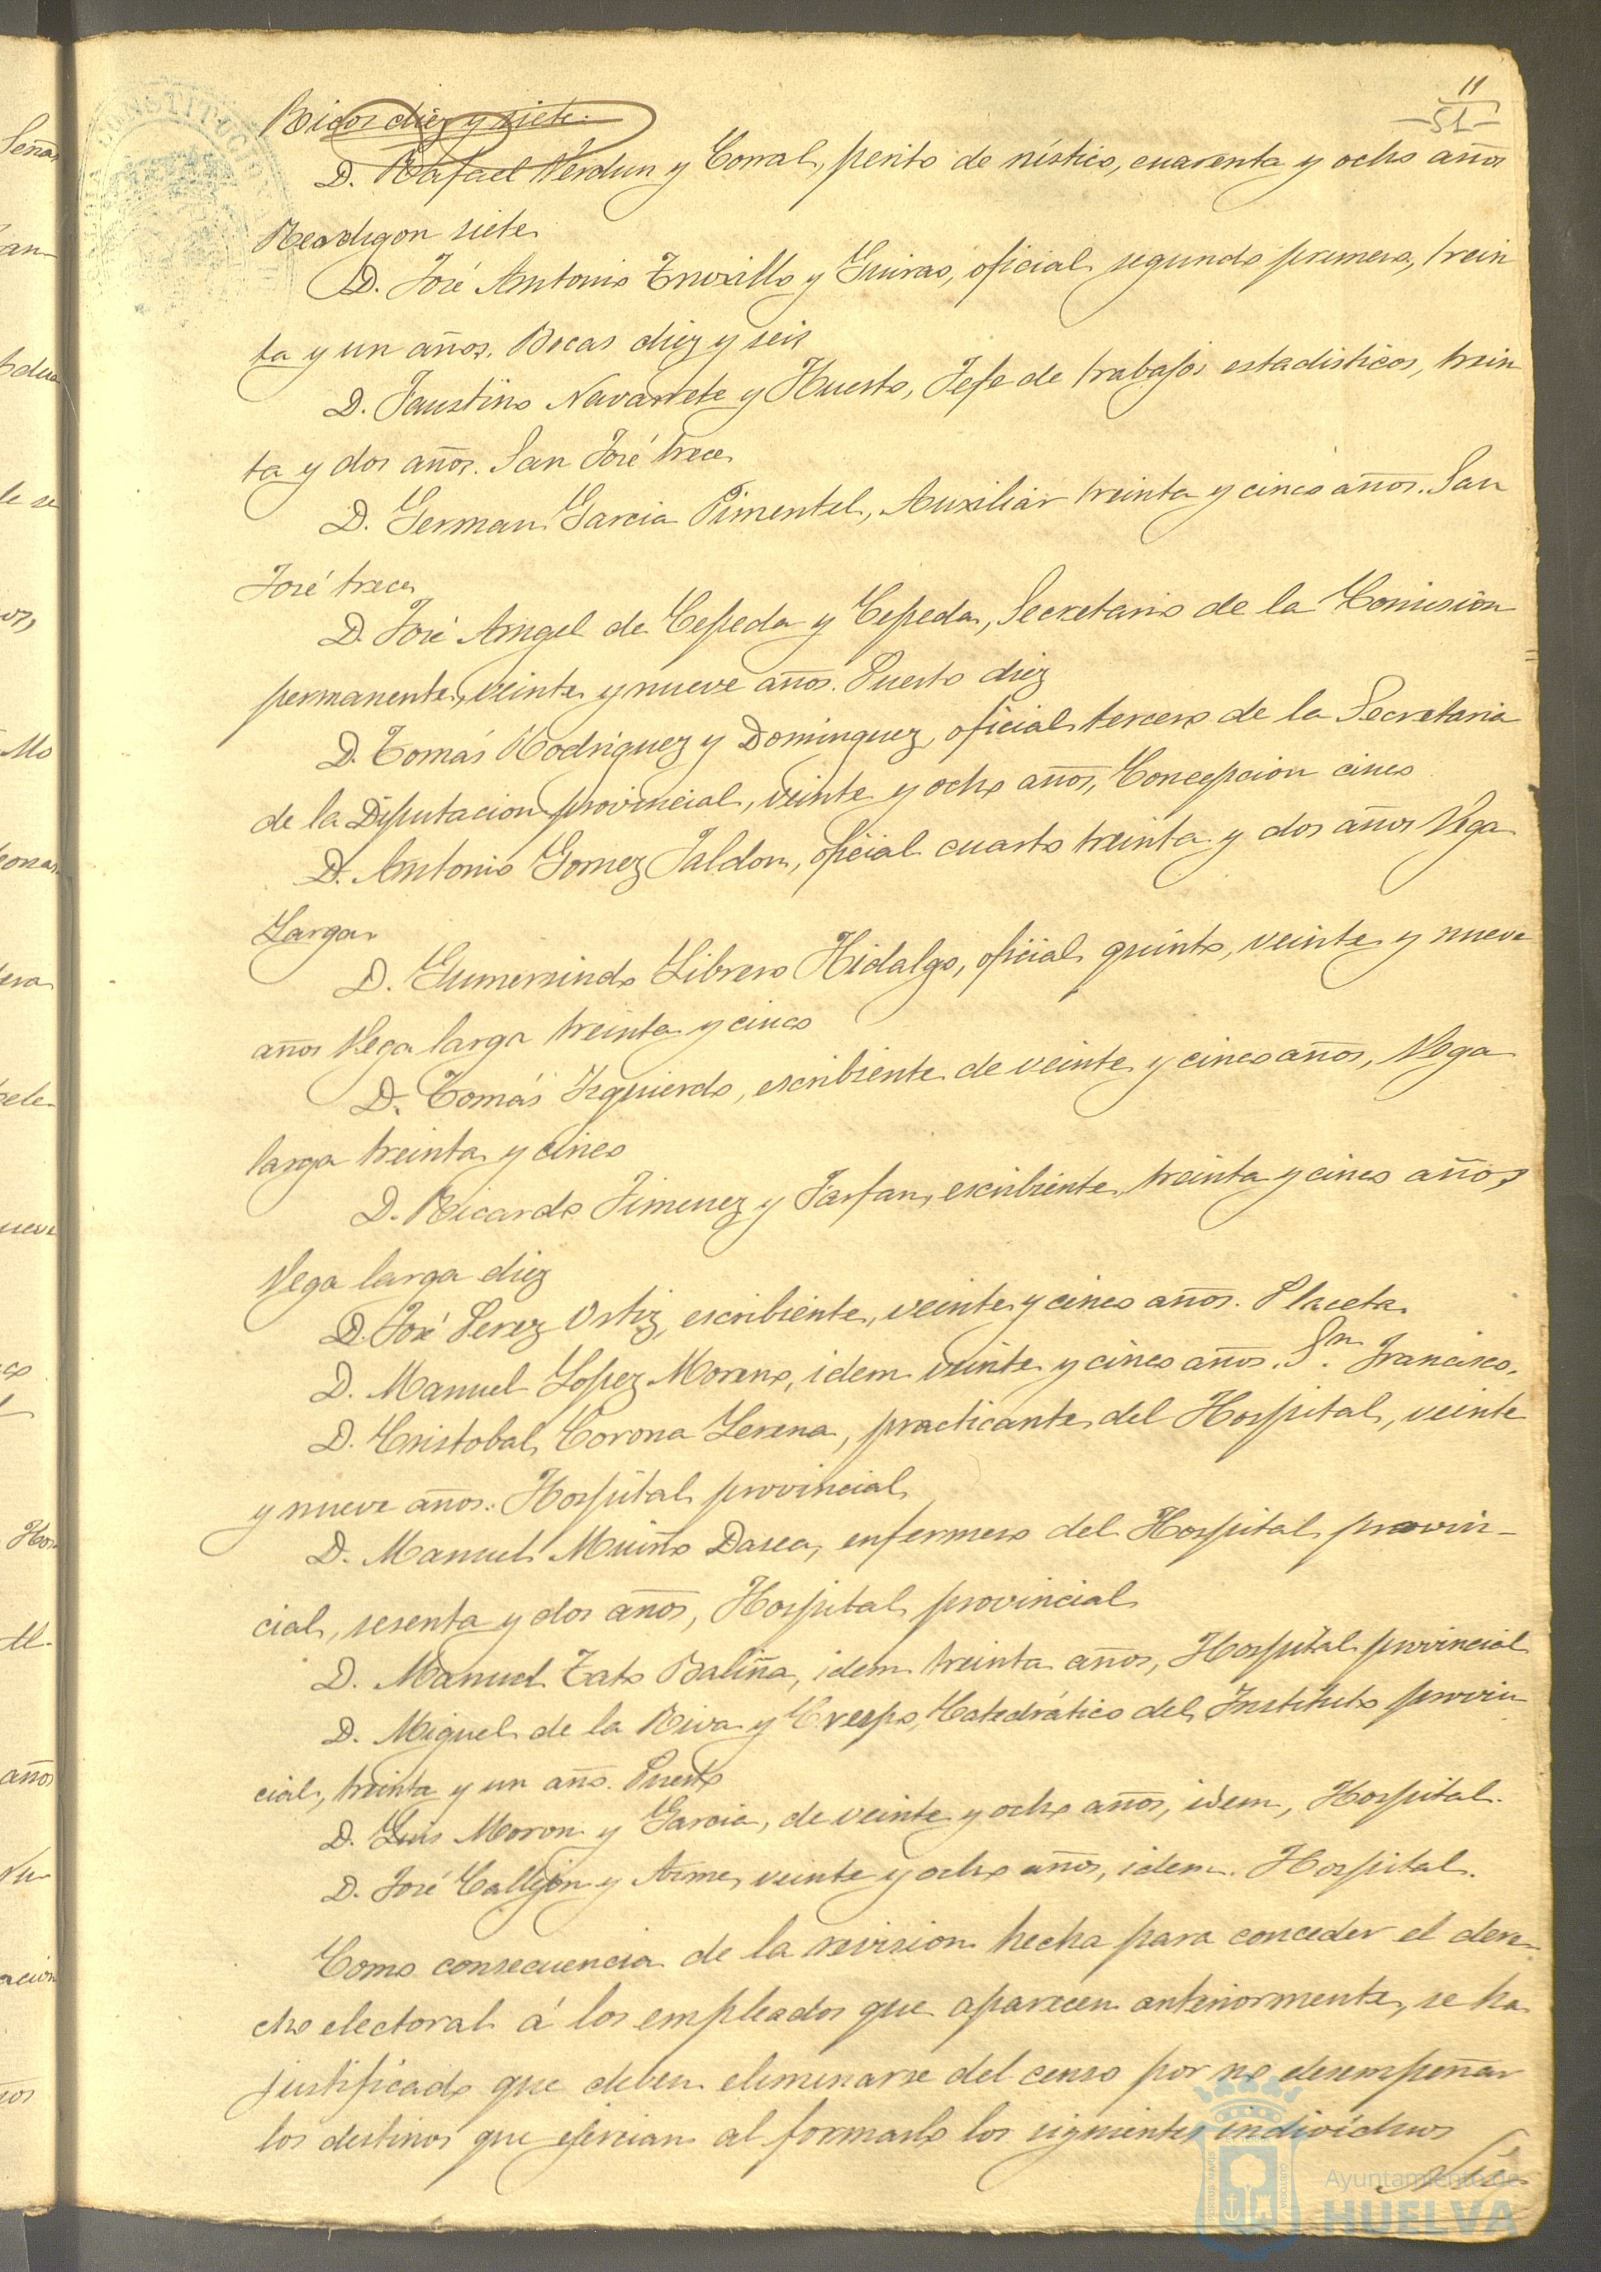 11
51
Ricos diez y siete.
D. Rafael Verdun y Corral, perito de rústico, cuarenta y ocho años
Rerdigon siete
D. José Antonio Truxillo y Guirao, oficial segundo primero, trein
ta y un años. Bocas diez y seis
D. Faustino Navarrete y Huesto, Jefe de trabajos estadisticos, trein
ta y dos años. San José trece
D. German Garcia Pimentel, Auxiliar treinta y cinco años. San
José trece
D. José Angel de Cepeda y Cepeda, Secretario de la Comision
permanente, veinte y nueve años. Puerto diez
D. Tomás Rodriguez y Dominguez, oficial tercero de la Secretaria
de la Diputacion provincial, veinte y ocho años, Concepcion cinco
D. Antonio Gomez Jaldon, oficial cuarto treinta y dos años Vega
Larga
D. Gumersindo Librero Hidalgo, oficial quinto, veinte y nueve
años Vega larga treinta y cinco
D. Tomás Izquierdo, escribiente de veinte y cinco años, Vega
larga treinta y cinco
D. Ricardo Jimenez y Farfan, escribiente, treinta y cinco años
Vega larga diez
D. José Perez Ortiz, escribiente, veinte y cinco años. Placeta
D. Manuel Lopez Moreno, idem veinte y cinco años. Sn. Francisco.
D. Cristobal Corona Lerena, practicante del Hospital, veinte
y nueve años. Hospital provincial
D. Manuel Muiño Dasca, enfermero del Hospital provin-
cial, sesenta y dos años, Hospital provincial
D. Manuel Tato Baliña, idem treinta años, Hospital provincial
D. Miguel de la Riva y Crespo, Catedrático del Instituto provin
cial, treinta y un año. Puerto
D. Luis Moron y Garcia, de veinte y ocho años, idem, Hospital.
D. José Callejon y Asme, veinte y ocho años, idem. Hospital.
Como consecuencia de la revision hecha para conceder el dere-
cho electoral á los empleados que aparecen anteriormente, se ha
justificado que deben eliminarse del censo por no desempeñar
los destinos que ejercian al formarlo los siguientes individuos
Ayuntamiento de
HUELVA